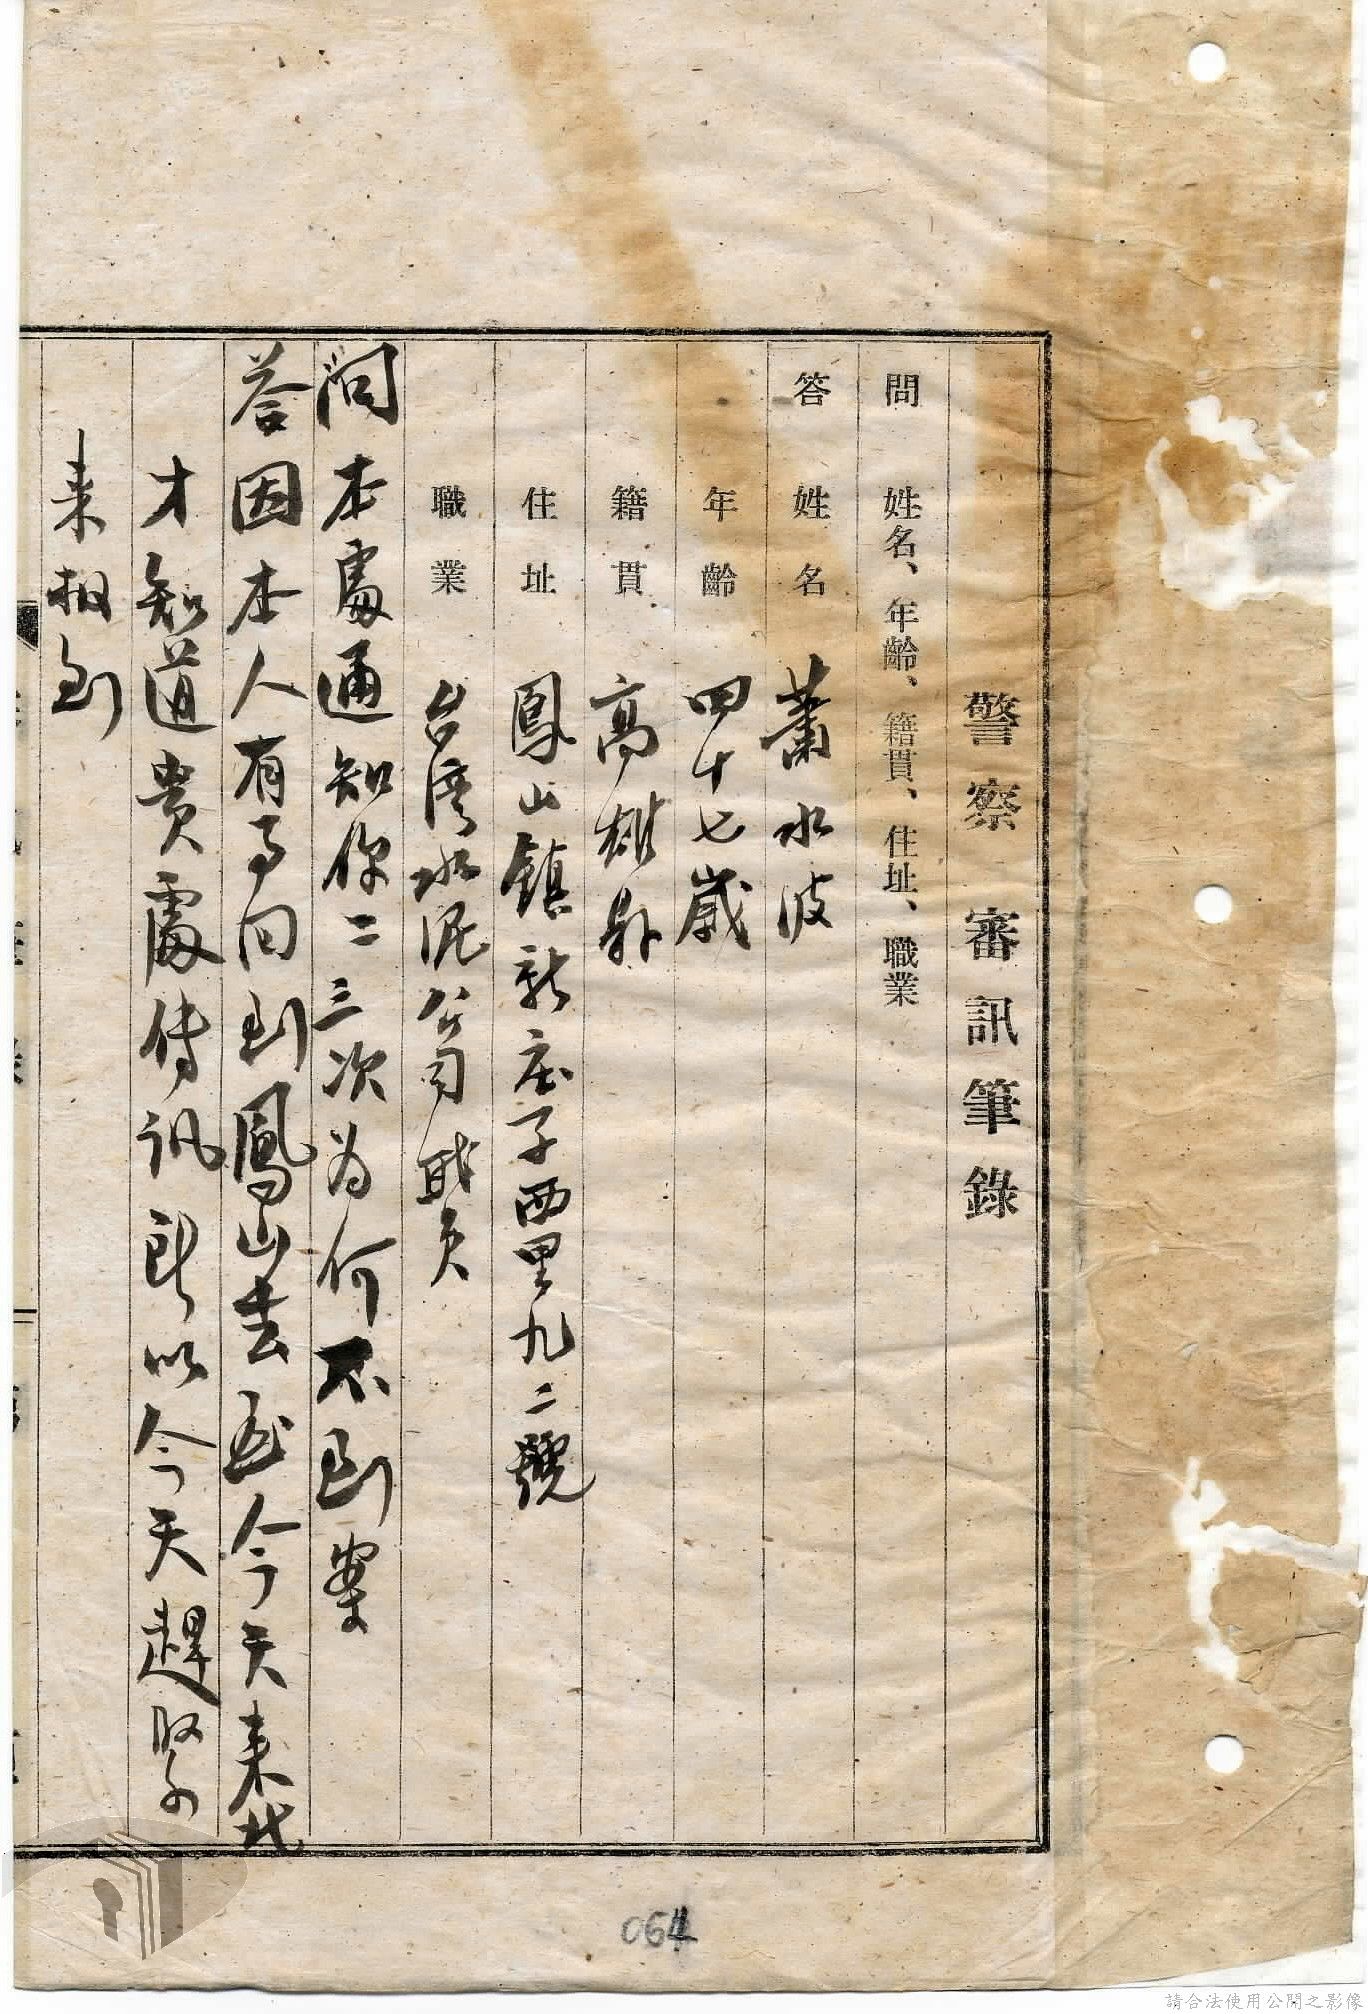 警察審訊筆錄
問 姓名、年齡、籍貫、住址、職業
答 姓名 蕭水波
年齡 四十七歲
籍貫 高雄縣
住址 鳳山鎮新庄子西里九二號
職業 台湾水泥公司職員
問 本處通知你二三次為何不到案
答 因本人有事回到鳳山去至今天来北
才知道貴處传讯所以今天趕緊
来报到
064
請合法使用公開之影像